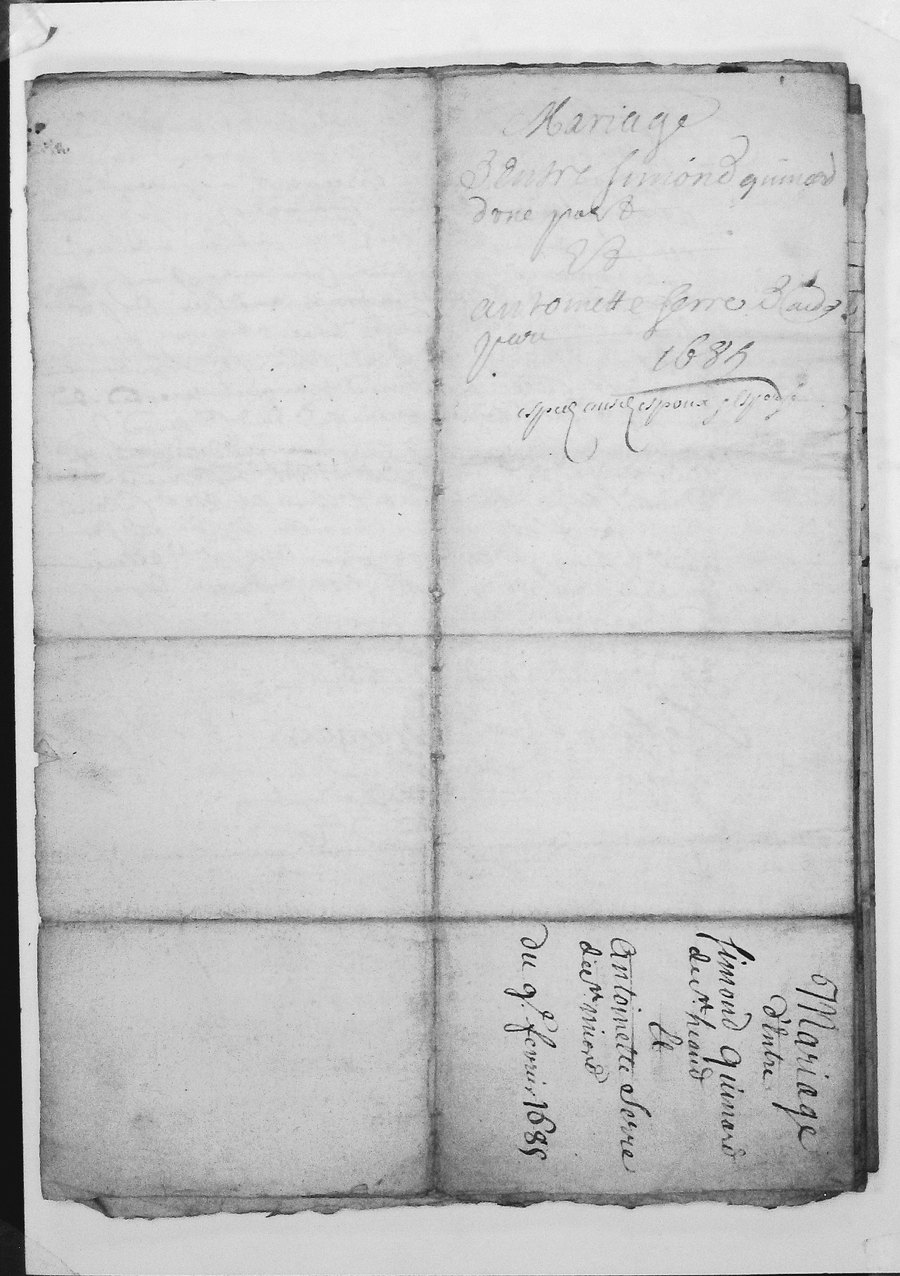 Mariage
dentre simond quinard
dune part
Et
antoinette serre dautre
part
1685
espoux
Mariage
d'Entre
simond Quinard
de Sr heand
Et
Antoinette Serre
de Sr miond
du 9e fevrier 1685